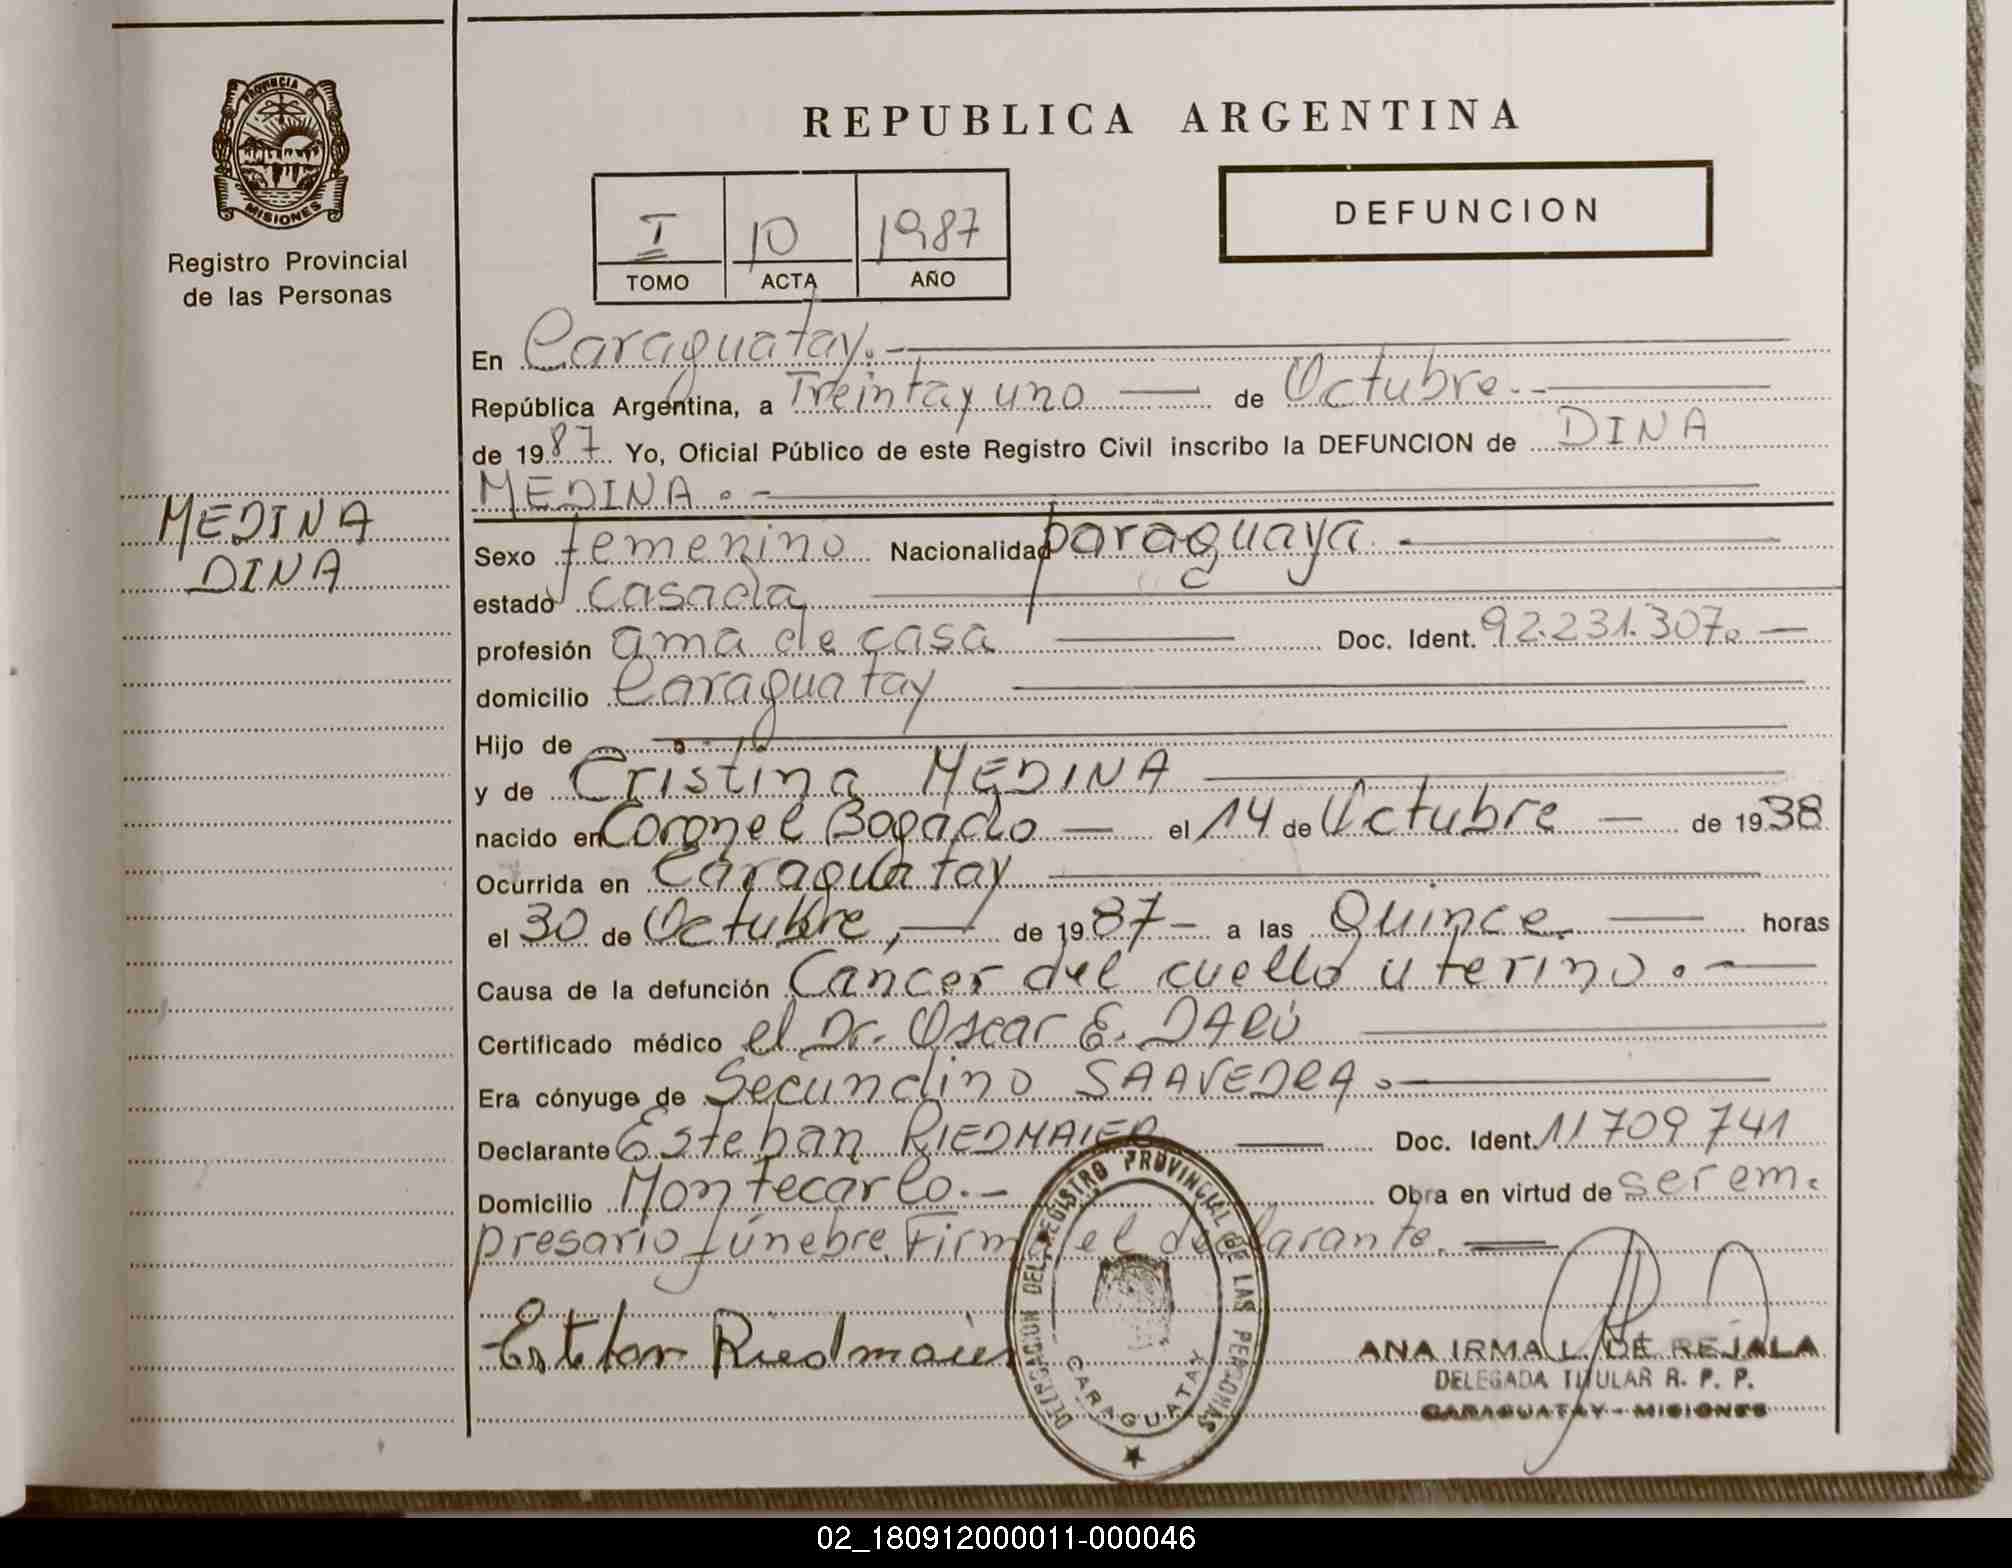 PROVINCIA DE
MISIONES
Registro Provincial
de las Personas
MEDINA
DINA
REPUBLICA ARGENTINA
I 10 1987
TOMO ACTA AÑO
DEFUNCION
En Caraguatay.-
República Argentina, a Treinta y uno — de Octubre.-
de 1987 Yo, Oficial Público de este Registro Civil inscribo la DEFUNCION de DINA
MEDINA.-
Sexo femenino Nacionalidad paraguaya.-
estado casada
profesión ama de casa — Doc. Ident. 92.231.307.-
domicilio Caraguatay —
Hijo de —
y de Cristina MEDINA —
nacido en Coronel Bogado — el 14 de Octubre — de 1938
Ocurrida en Caraguatay —
el 30 de Octubre,— de 1987- a las Quince.— horas
Causa de la defunción Cáncer del cuello uterino.-
Certificado médico el Dr. Oscar E. —
Era cónyuge de Secundino SAAVEDRA.-
Declarante Esteban RIEDMAIER — Doc. Ident. 11709741
Domicilio Montecarlo.- Obra en virtud de ser em-
presario fúnebre. Firma el declarante.=
Esteban Riedmaier
DELEGACION DEL REGISTRO PROVINCIAL DE LAS PERSONAS
CARAGUATAY
ANA IRMA L. DE REJALA
DELEGADA TITULAR R. P. P.
CARAGUATAY - MISIONES
02_180912000011-000046